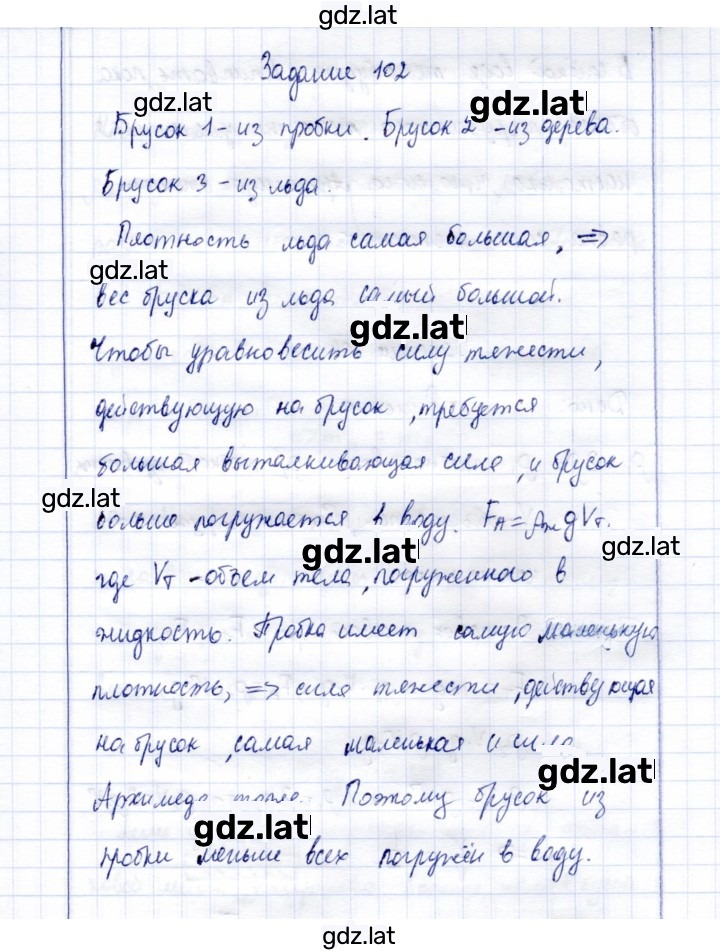 gdz.lat
Задание 102
gdz.lat
gdz.lat
Брусок 1 - из пробки. Брусок 2 - из дерева.
Брусок 3 - из льда.
Плотность льда самая большая, =>
gdz.lat
вес бруска из льда самый большой.
gdz.lat
Чтобы уравновесить силу тяжести,
действующую на брусок, требуется
большая выталкивающая сила, и брусок
gdz.lat
больше погружается в воду. Fᴀ = ρж gVт.
gdz.lat
gdz.lat
где Vт - объем тела, погруженного в
жидкость. Пробка имеет самую маленькую
плотность, => сила тяжести, действующая
на брусок, самая маленькая и сила
gdz.lat
Архимеда тоже. Поэтому брусок из
gdz.lat
пробки меньше всех погружён в воду.
gdz.lat